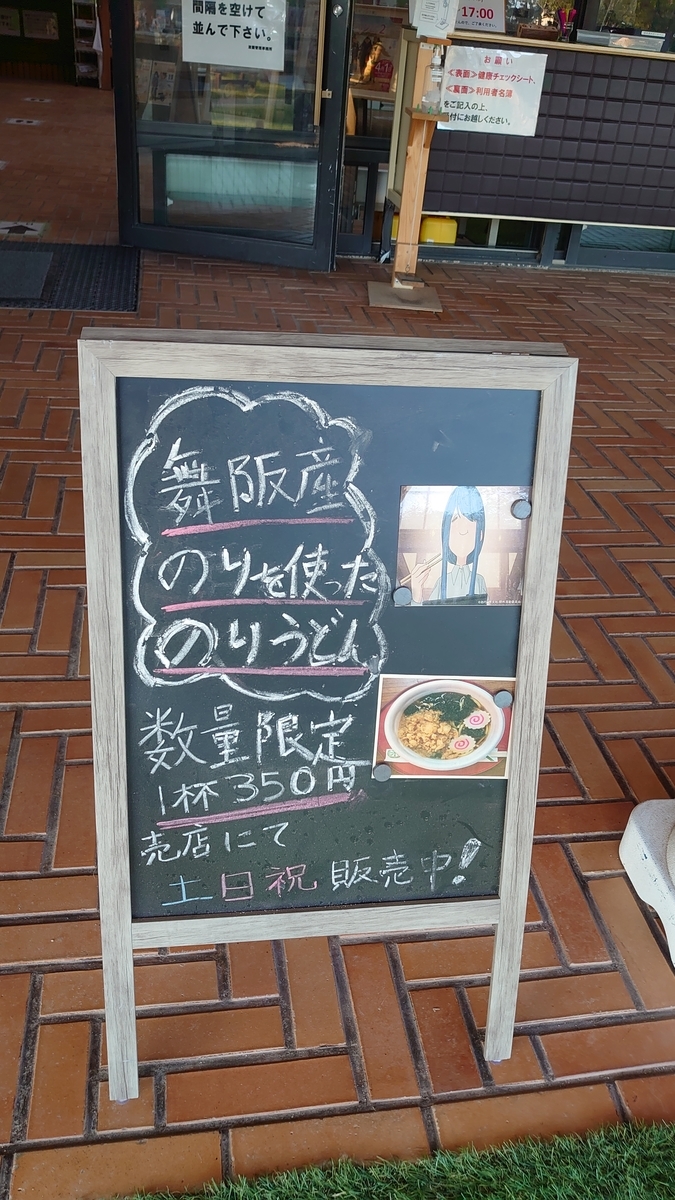 間隔を空けて
並んで下さい。
17:00
お願い
<表面>健康チェックシート、
<裏面>利用者名簿
をご記入の上、
付にお越しください。
舞阪産
のりを使った
のりうどん
数量限定
1杯350円
売店にて
土日祝販売中!